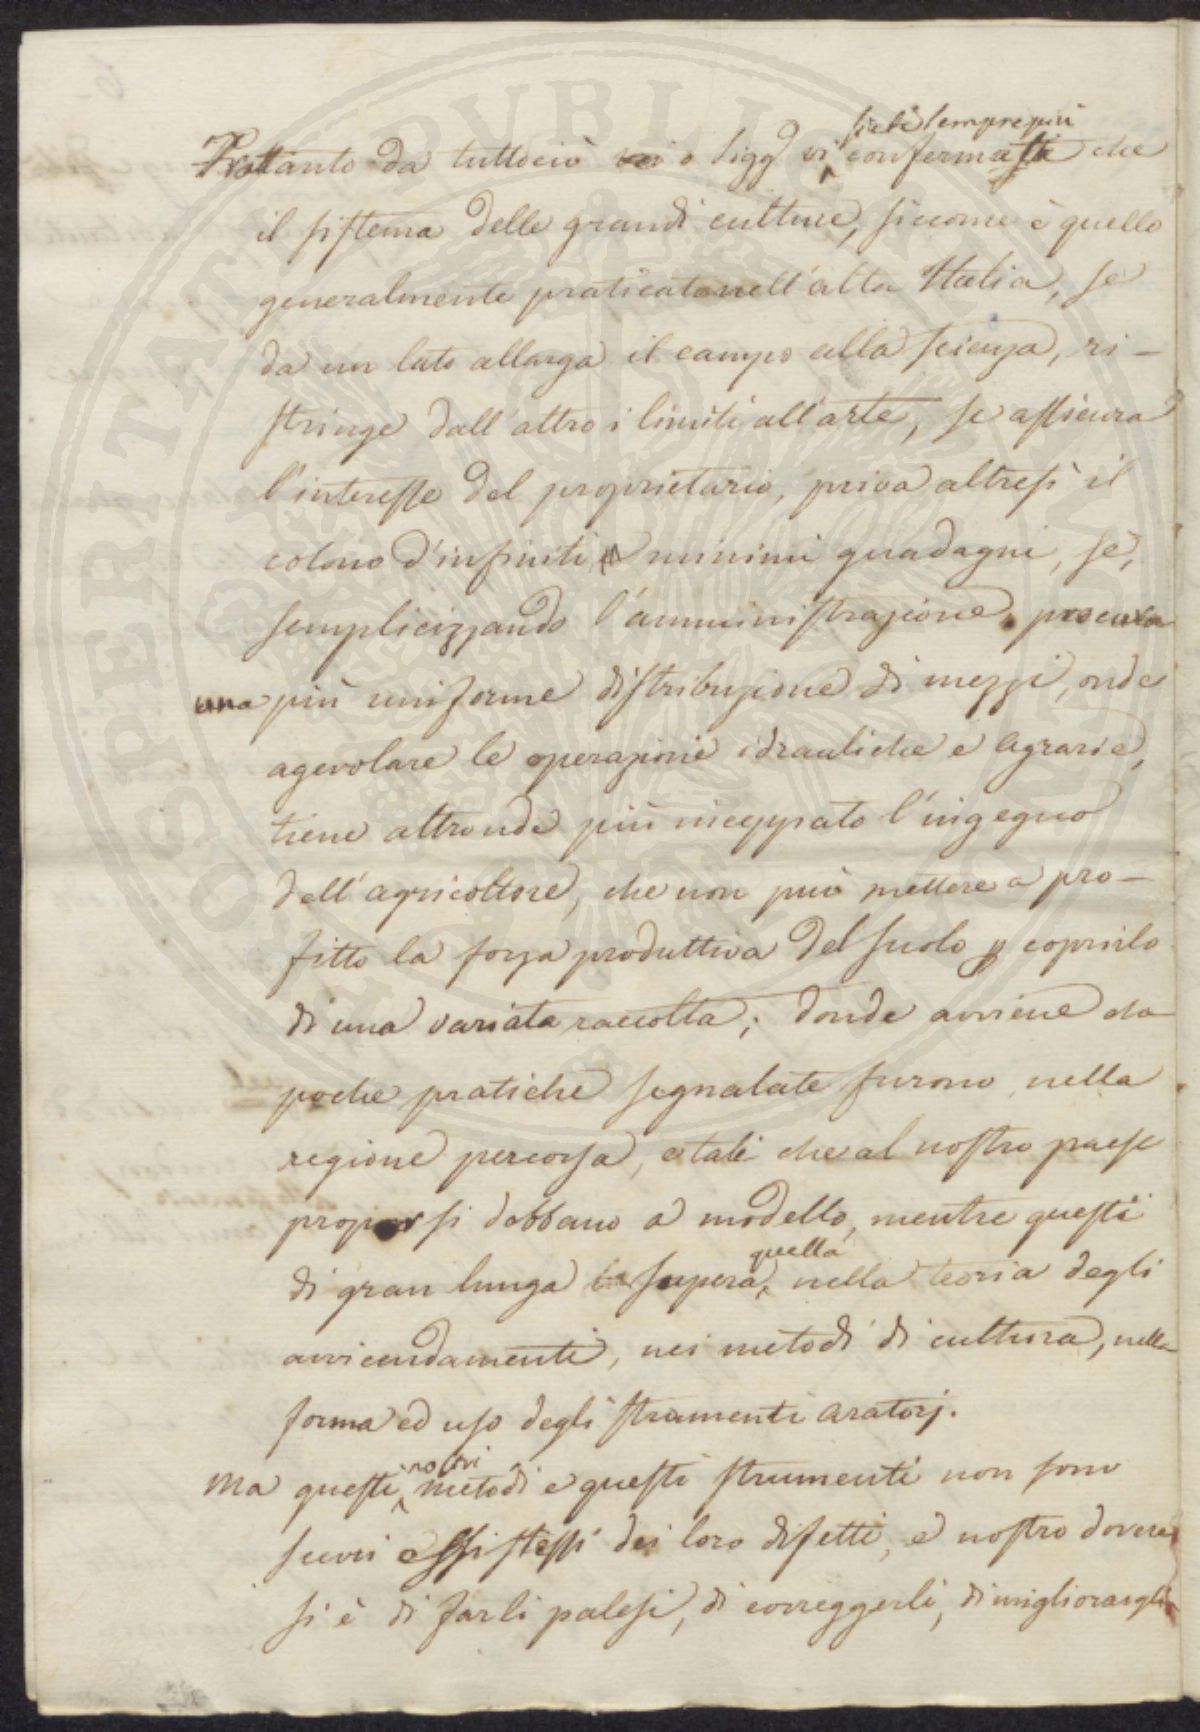 siete sempre più
Frattanto da tuttociò o Sigg.i vi confermati che
il sistema delle grandi culture, siccome è quello
generalmente praticato nell'alta Italia, se
da un lato allarga il campo alla scienza, ri-
stringe dall'altro i limiti all'arte, se assicura
l'interesse del proprietario, priva altresì il
colono d'infiniti minimi guadagni, se,
semplicizzando l'amministrazione, procura
una più uniforme distribuzione di mezzi, onde
agevolare le operazioni idrauliche e agrarie,
tiene altronde più inceppato l'ingegno
dell'agricoltore, che non può mettere a pro-
fitto la forza produttiva del suolo coprirlo
di una variata raccolta; donde avviene che
poche pratiche segnalate furono nella
regione percorsa, e tali che al nostro paese
proporsi debbano a modello, mentre questi
quella
di gran lunga supera, nella teoria degli
avvicendamenti, nei metodi di cultura, nella
forma ed uso degli strumenti aratorj.
nostri
Ma questi metodi e questi strumenti non sono
scevri essi stessi dei loro difetti, e nostro dovere
si è di farli palesi, di correggerli, di migliorargli
PROSPERITATI PUBLICAE